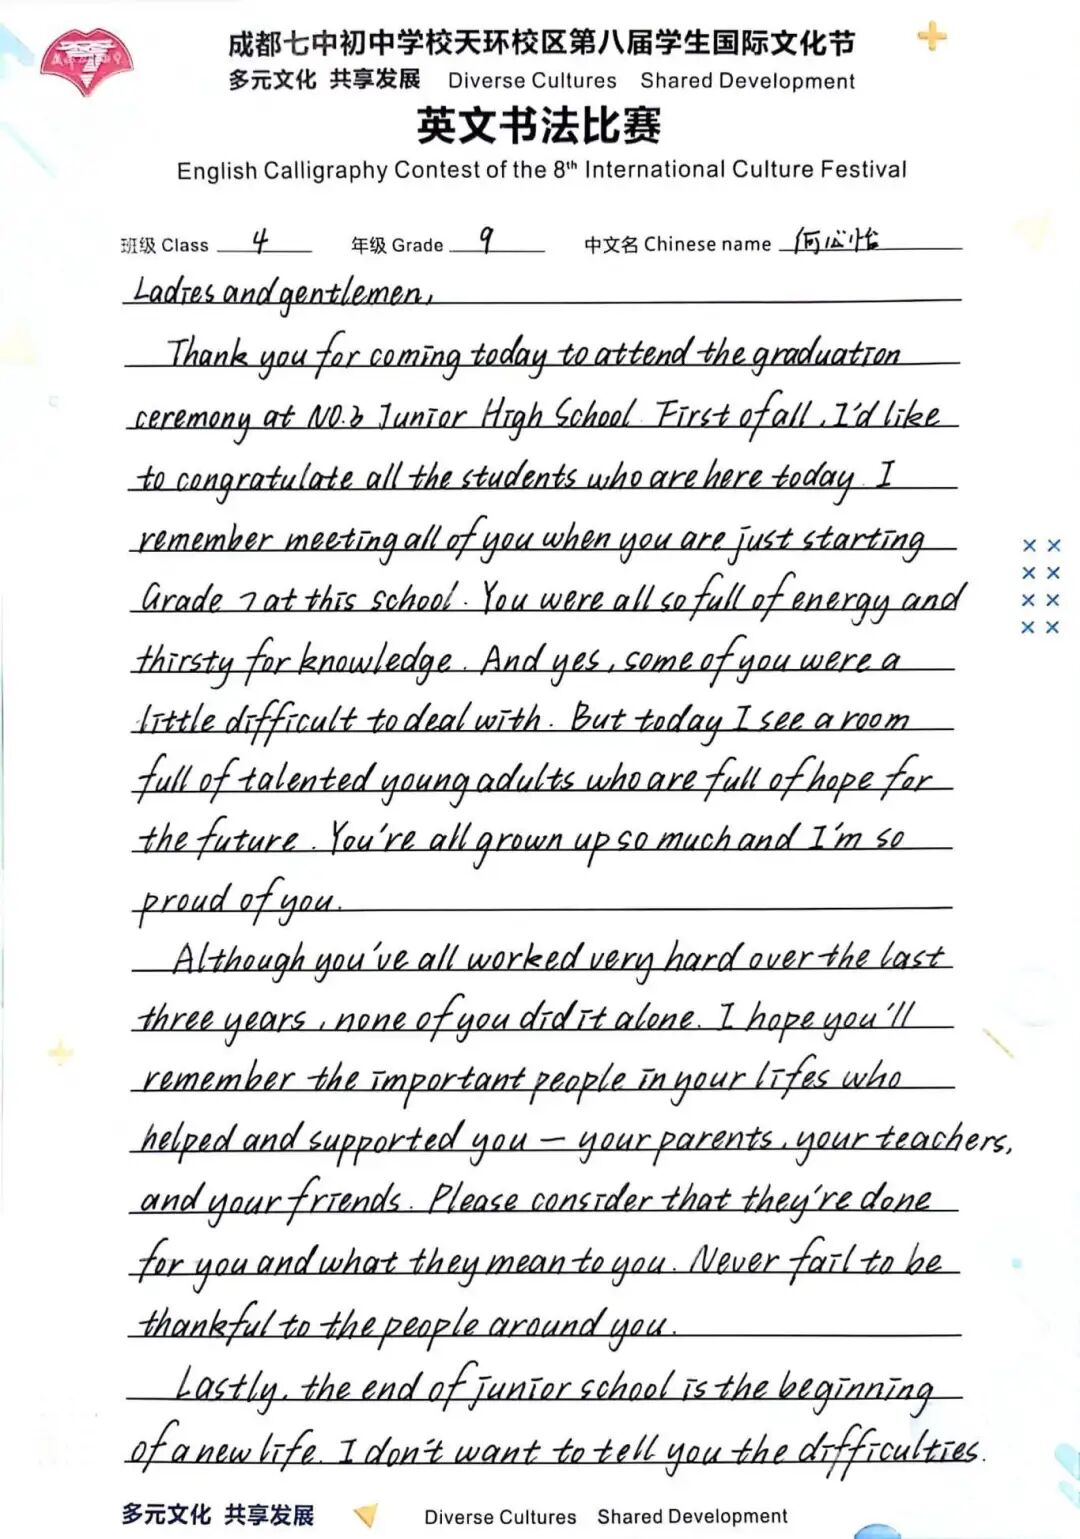 成都七中初中学校天环校区第八届学生国际文化节
多元文化 共享发展 Diverse Cultures Shared Development
英文书法比赛
English Calligraphy Contest of the 8th International Culture Festival
班级 Class 4 年级 Grade 9 中文名 Chinese name 何心怡
Ladies and gentlemen,
Thank you for coming today to attend the graduation
ceremony at NO.3 Junior High School. First of all, I'd like
to congratulate all the students who are here today. I
remember meeting all of you when you are just starting
Grade 7 at this school. You were all so full of energy and
thirsty for knowledge. And yes, some of you were a
little difficult to deal with. But today I see a room
full of talented young adults who are full of hope for
the future. You're all grown up so much and I'm so
proud of you.
Although you've all worked very hard over the last
three years, none of you did it alone. I hope you'll
remember the important people in your lifes who
helped and supported you — your parents, your teachers,
and your friends. Please consider that they're done
for you and what they mean to you. Never fail to be
thankful to the people around you.
Lastly, the end of junior school is the beginning
of a new life. I don't want to tell you the difficulties.
多元文化 共享发展 Diverse Cultures Shared Development